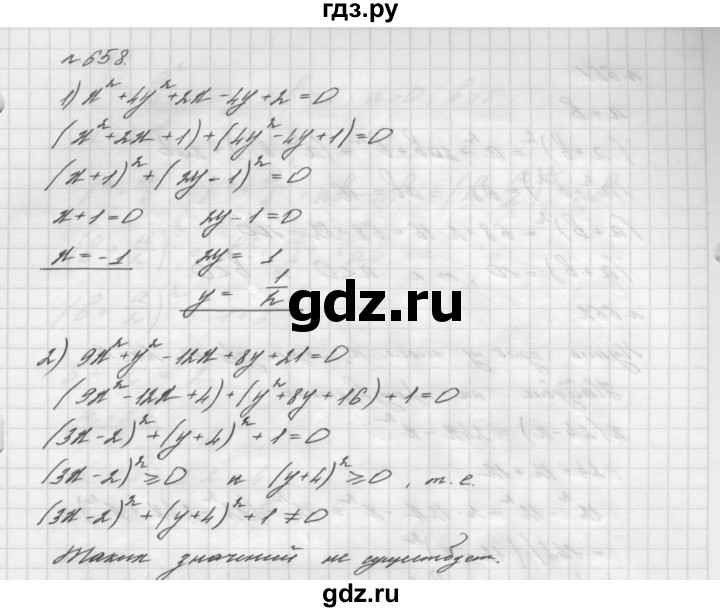 гдз.ру
№658.
1) x² + 4y² + 2x - 4y + 2 = 0
(x² + 2x + 1) + (4y² - 4y + 1) = 0
(x + 1)² + (2y - 1)² = 0
x + 1 = 0 2y - 1 = 0
x = -1 2y = 1
y = 1/2
gdz.ru
2) 9x² + y² - 12x + 8y + 21 = 0
(9x² - 12x + 4) + (y² + 8y + 16) + 1 = 0
(3x - 2)² + (y + 4)² + 1 = 0
(3x - 2)² ≥ 0 и (y + 4)² ≥ 0, т.е.
(3x - 2)² + (y + 4)² + 1 ≠ 0
Таких значений не существует.
gdz.ru